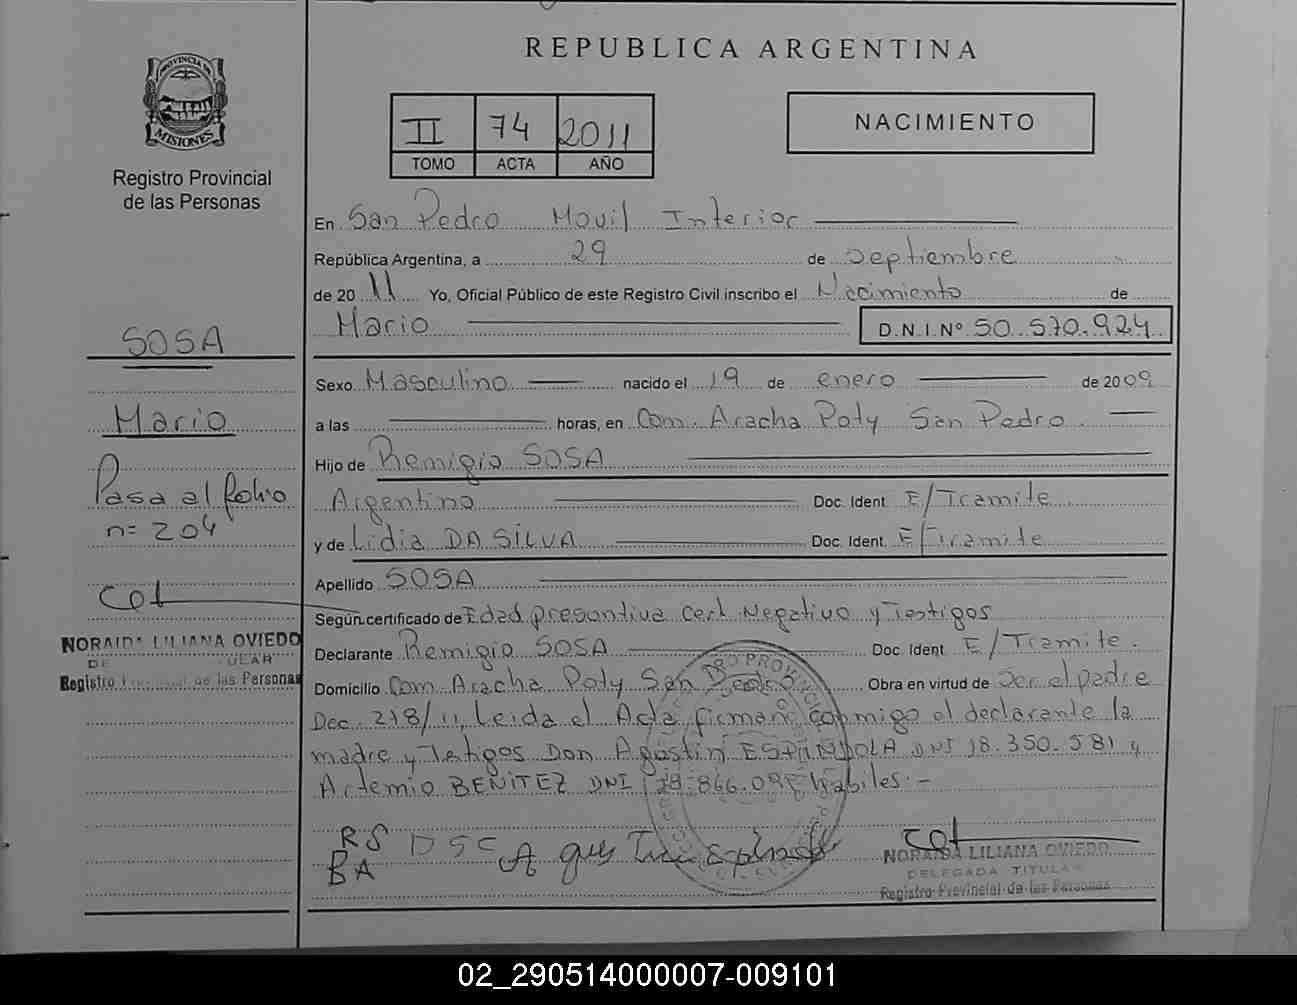 PROVINCIA DE
MISIONES
Registro Provincial
de las Personas
SOSA
Mario
Pasa al folio
n= 204
NORAIDA LILIANA OVIEDO
Registro Provincial de las Personas
REPUBLICA ARGENTINA
II 74 2011
TOMO ACTA AÑO
NACIMIENTO
En San Pedro Movil Interior
República Argentina, a 29 de Septiembre
de 2011 Yo, Oficial Público de este Registro Civil inscribo el Nacimiento de
Mario D.N.I.Nº 50.570.924
Sexo Masculino nacido el 19 de enero de 2009
a las horas, en Com. Aracha Poty San Pedro.
Hijo de Remigio SOSA
Argentino Doc. Ident. E/Tramite
y de Lidia DA SILVA Doc. Ident. E/Tramite
Apellido SOSA
Según certificado de Edad presuntiva Cert. Negativo y Testigos
Declarante Remigio SOSA Doc. Ident E/Tramite.
Domicilio Com. Aracha Poty San Pedro Obra en virtud de Ser el padre
Dec. 218/11, Leida el Acta firman conmigo el declarante la
madre y Testigos Don Agustin ESPINDOLA DNI 18.350.581 y
Artemio BENITEZ DNI habiles.-
RS DSC
BA
NORAIDA LILIANA OVIEDO
DELEGADA TITULAR
Registro Provincial de las Personas
02_290514000007-009101